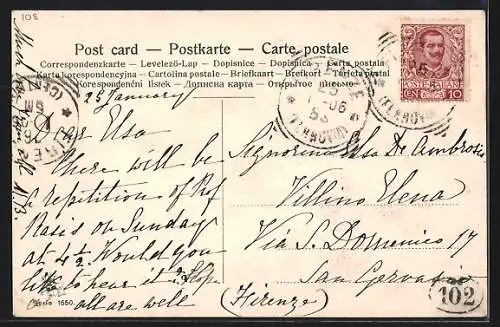 108
Post card — Postkarte — Carte postale
Correspondenzkarte - Levelező-Lap - Dopisnice - Dopisnica - Carta postale
Karta korespondencyjna - Cartolina postale - Briefkaart - Brefkort - Tarjeta postal
Korespondenční lístek - Дописна карта - Открытое письмо
POSTE ITALIANE
CEN. 10
23 January
Dear Elsa
There will be
a repetition of
on Sunday
at 4½. Would you
like to hear it? Hope
all are well
Signorina Elsa De Ambrosis
Villino Elena
Via S. Domenico 17
San Gervasio
(Firenze)
1550.
102